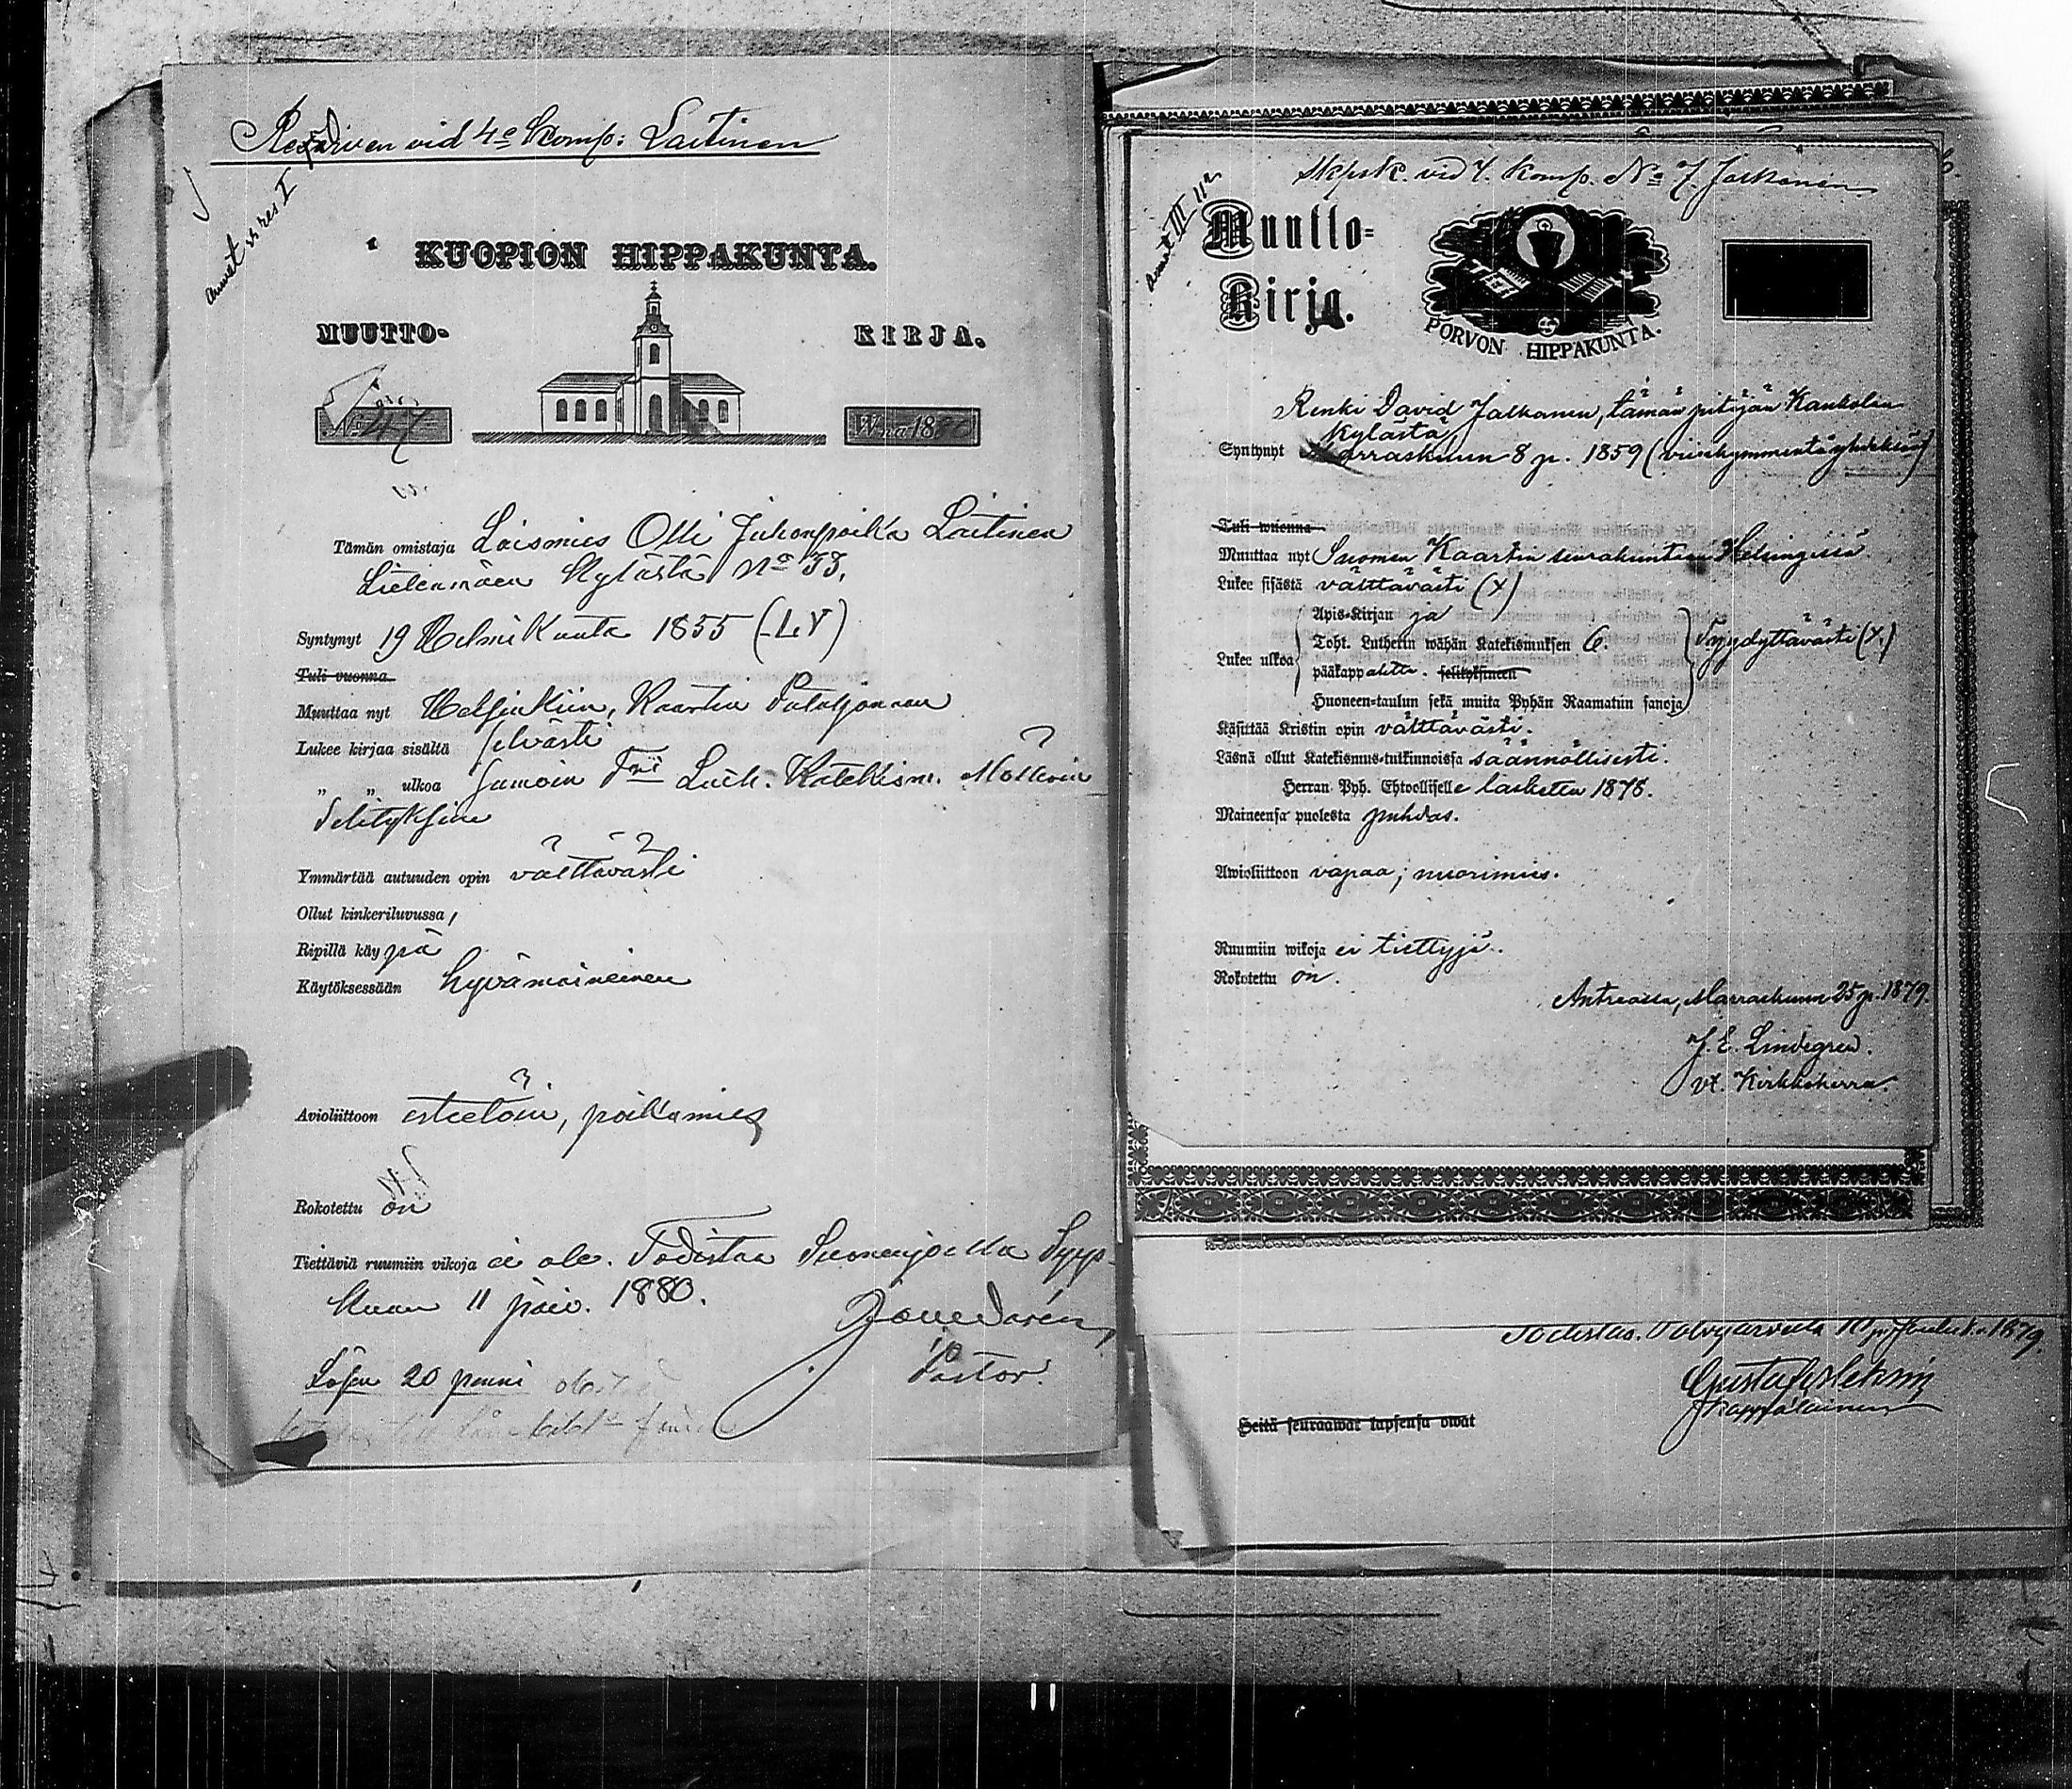 Reserven vid 4e Komp: Laitinen
KUOPION HIPPAKUNTA.
MUUTTO- KIRJA.
No 47 W:na 1880
Tämän omistaja Loismies Olli Juhonpoika Laitinen
Lietenmäen kylästä No 33.
Syntynyt 19 Helmikuuta 1855 (LV)
Tuli vuonna
Muuttaa nyt Helsinkiin, Kaartin Pataljonaan
Lukee kirjaa sisältä selvästi
„ „ ulkoa samoin Luth. Katekism.
Selityksine
Ymmärtää autuuden opin välttävästi
Ollut kinkeriluvussa,
Ripillä käypä
Käytöksessään hyvämaineinen
Avioliittoon esteetöin, poikamies
Rokotettu on
Tiettäviä ruumiin vikoja ei ole. Todistaa Suonenjoella Syys-
kuun 11 päiv. 1880.
Pastor.
Lösen 20 penni
Skpsk. vid 4. Komp. No 7. Jalkanen
Muutto-
Kirja.
PORVON HIPPAKUNTA.
Renki David Jalkanen, tämän pitäjän Kankolan
kylästä,
Syntynyt Marraskuun 8 p. 1859 (viisikymmentäyhdeksän)
Tuli wuonna
Muuttaa nyt Suomen Kaartin seurakuntaan Helsingissä
Lukee sisästä välttävästi (x)
Lukee ulkoa
Apis-Kirjan ja
Toht. Lutherin wähän Katekismuksen 6.
pääkappaletta. selityksineen
Huoneen-taulun sekä muita Pyhän Raamatun sanoja
Tyydyttävästi (x.)
Käsittää Kristin opin välttävästi.
Läsnä ollut Katekismus-tutkinnoissa säännöllisesti.
Herran Pyh. Ehtoolliselle laskettu 1878.
Maineensa puolesta puhdas.
Awioliittoon vapaa; nuorimies.
Ruumiin wikoja ei tiettyjä.
Rokotettu on.
Antreassa, Marraskuun 25 p. 1879.
J. E. Lindegren.
vt. Kirkkoherra.
Todistaa. 10 p. Jouluk. 1879.
Kappalainen
Heitä seuraawat lapsensa owat